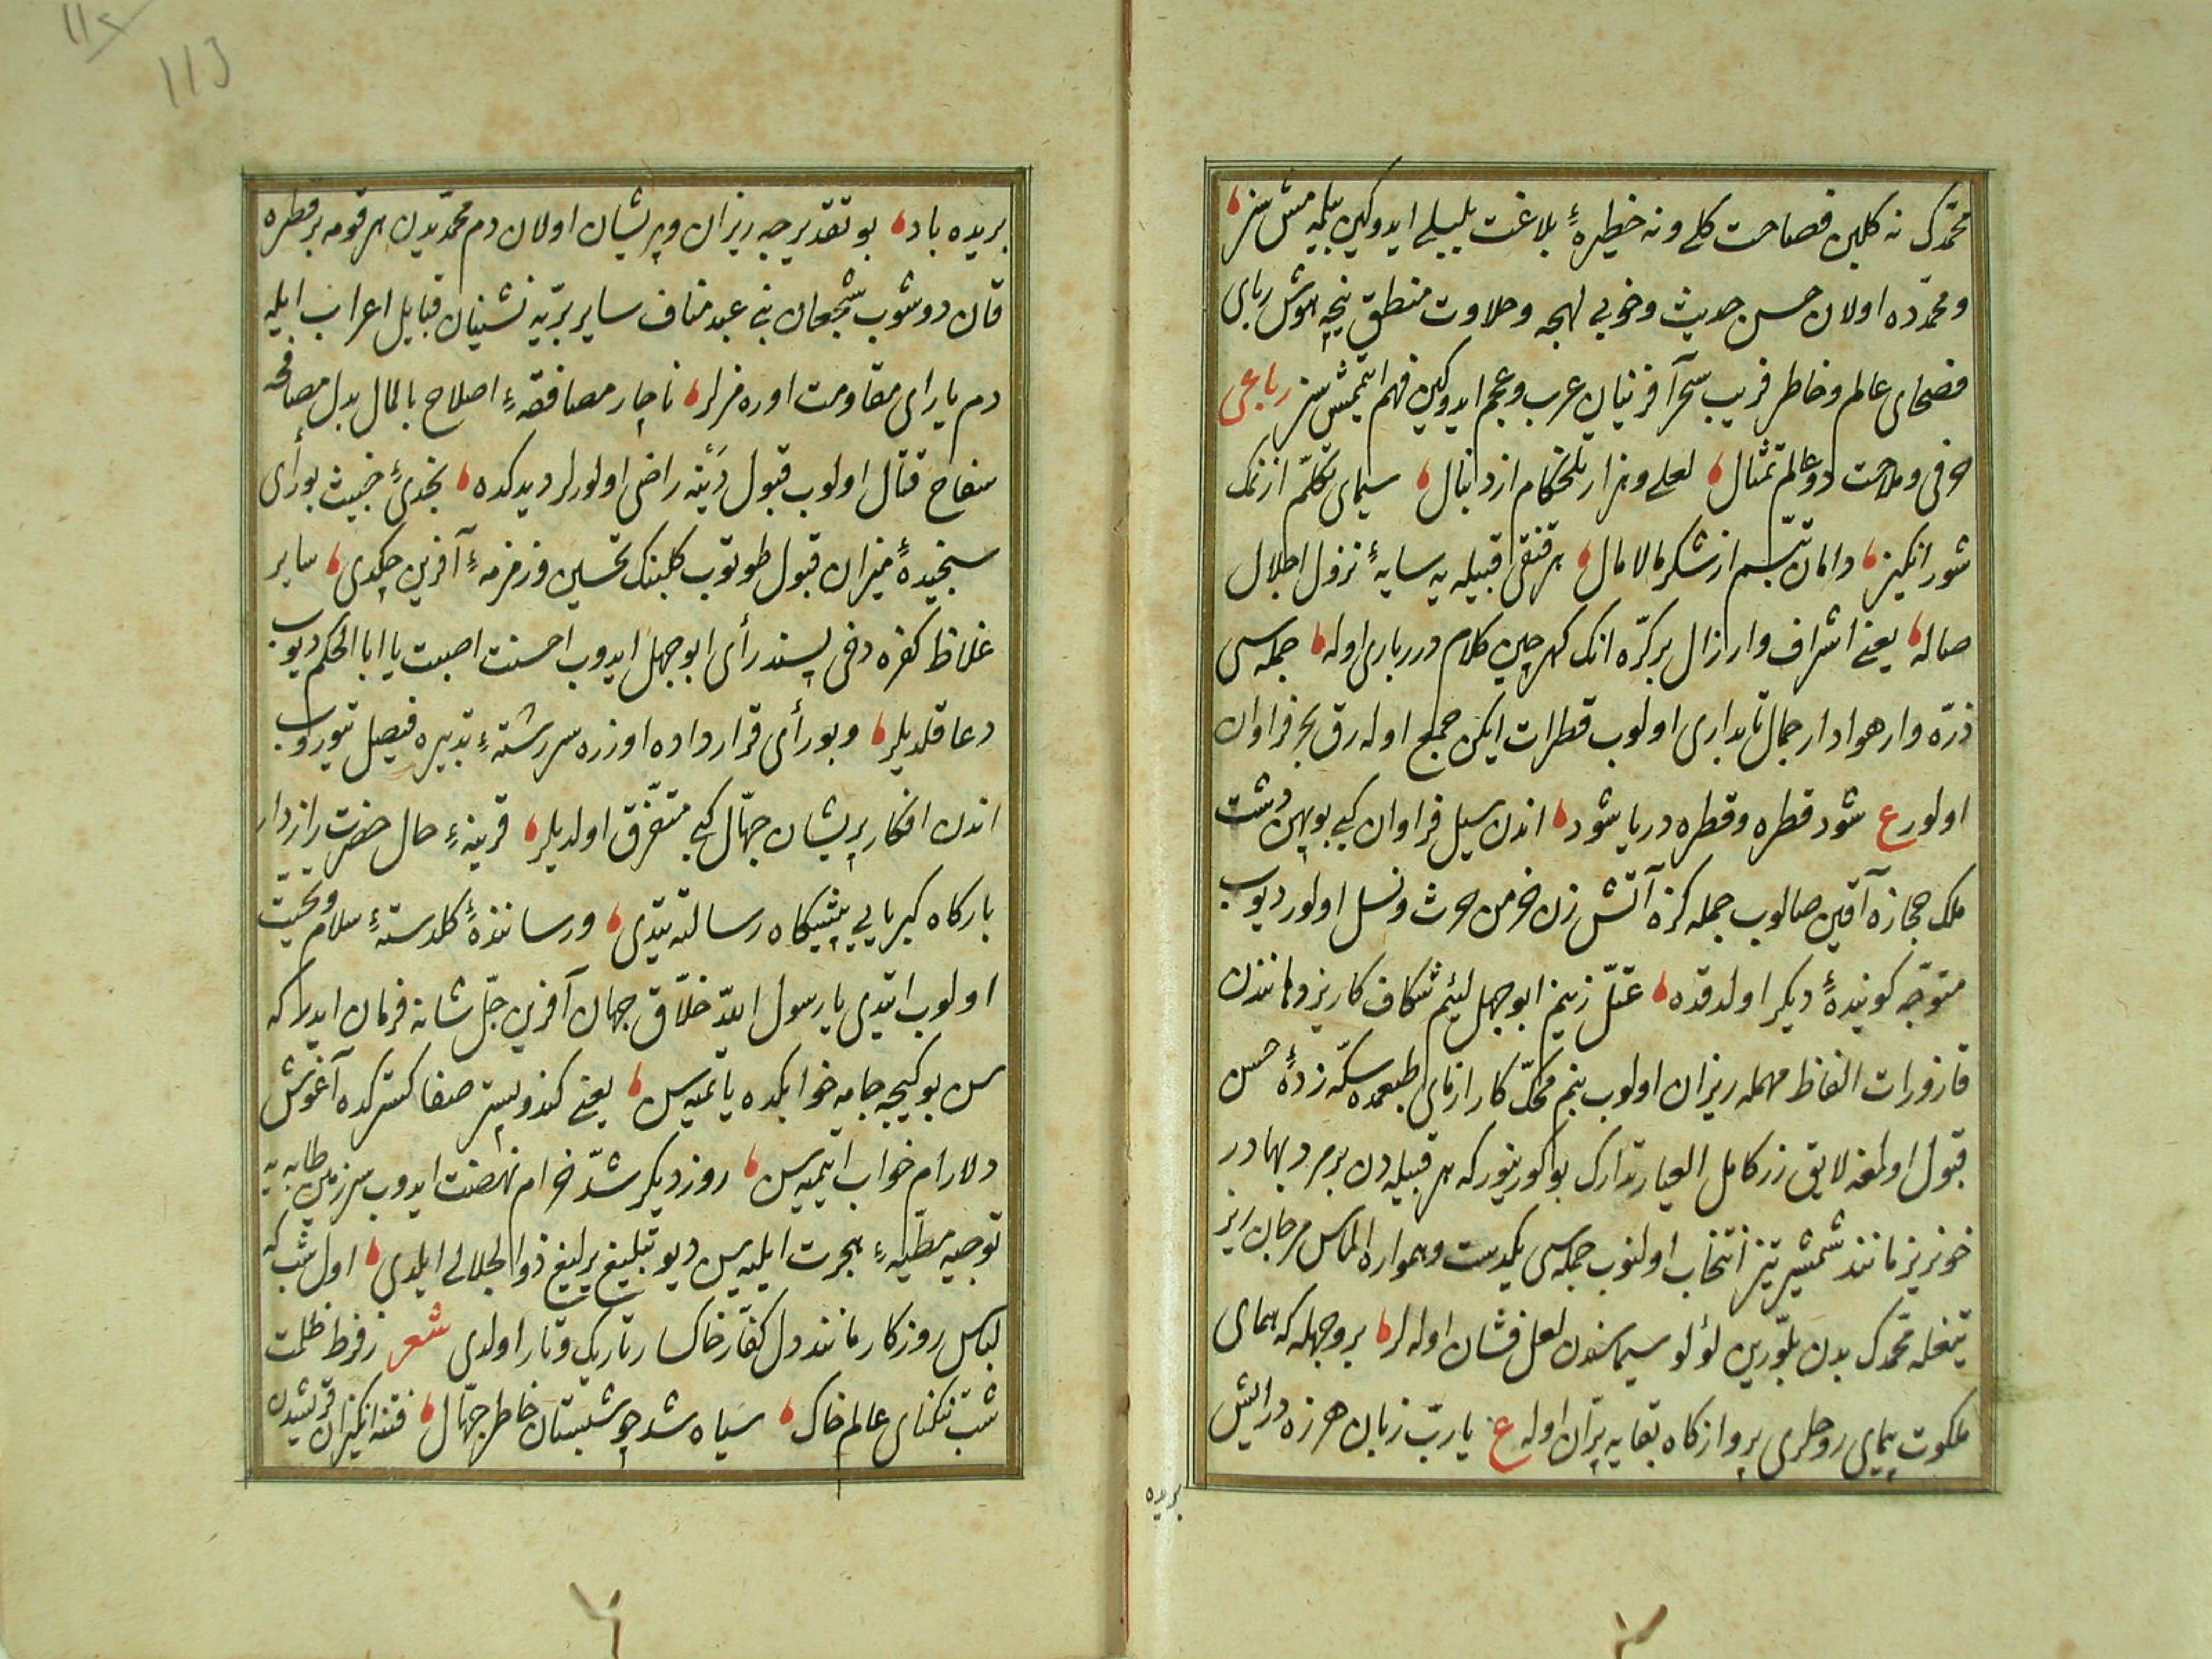 محمّدك نه كلبن فصاحت كلی ونه خطیرهٔ بلاغت بلبلی ایدوكین بیلمیشسز
ومحمّدده اولان حسن حدیث وخوبی لهجه وحلاوت منطق نیجه هوش ربای
فصحای عالم وخاطر فریب سحر آفرینان عرب وعجم ایدوكین فهم ایتمشسز رباعی
حرفی وملاحت دو عالم تمثال لعلی وهزار تلخكام از دنبال سیمای تكلّم از نمك
شور انكیز دامان تبسّم از شكر مالامال هر قنقی قبیله یه سایهٔ نزول اجلال
صاله یعنی اشراف وارازال بر كرّه انك كهرچین كلام درربار‌ی اوله جمله سی
ذرّه وار هوادار جمال تابداری اولوب قطرات ایكن جمع اوله رق بحر فراوان
اولور ع شود قطره وقطره دریا شود اندن سیل فراوان كبی بو پهن دشت
ملك حجازه آقین صالوب جمله كزه آتش زن خرمن حرث ونسل اولور دیوب
متوجّه كویندهٔ دیكر اولدقده عتلّ زنیم ابو جهل لئیم شكاف كاریز دهانندن
قازورات الفاظ مهمله ریزان اولوب بنم محكّ كار ازمای طبعمده سكّه زدهٔ حسن
قبول اولمغه لایق زر كامل العیار تدارك بو كورینور كه هر قبیله دن برمرد بهادر
خونریز مانند شمشیر تیز انتخاب اولنوب جمله سی یكدست وهمواره الماس مرجان ریز
تیغله محمّدك بدن بلّورین لؤلؤ سیماسندن لعل فشان اوله لر بر وجهله كه همای
ملكوت پیمای روحلری پروازكاه بقایه پرّان اوله ع یاربّ زبان هرزه درایش
بریده
بریده باد بو تقدیرجه ریزان وپریشان اولان دم محمّدیدن هر قومه بر قطره
قان دوشوب شجعان بنی عبد مناف سایر بریّه نشینان قبایل اعراب ایله
دم یارای مقاومت اوره مزلر ناچار مصافقهٔ اصلاح بالمال بدل مصافحه
سفاح قتال اولوب قبول دیته راضی اولورلر دیدكده نجدیٔ خبیث بو رأی
سنجیدهٔ میزان قبول طوتوب كلبنك تحسین وزمزمهٔ آفرین چكدی سایر
غلاظ كفره دخی پسند رأی ابو جهل ایدوب احسنت اصبت یا ابا الحكم دیوب
دعا قلدیلر وبو رأی قرارداده اوزره سررشتهٔ تدبیره فیصل ویروب
اندن افكار پریشان جهّال كبی متفرّق اولدیلر قرینهٔ حال حضرت رازدار
باركاه كبریایی پیشكاه رسالته یتدی ورسانندهٔ كلدستهٔ سلام وتحیّت
اولوب ایتدی یا رسول الله خلّاق جهان آفرین جلّ شانه فرمان ایدر كه
سن بو كیجه جامه خوابكده یاتمیه سن یعنی كندو بستر صفا كستركده آغوش
دلارام خواب ایتمیه سن روز دیكر شدّ حزام نهضت ایدوب سرزمین طابه یه
توجیه مطیّهٔ هجرت ایلیه سن دیو تبلیغ یرلیغ ذوالجلالی ایلدی اول شب كه
لباس روزكار مانند دل كفّار خاكسار تاریك وتار اولدی شعر ز فرط ظلمت
شب تنكنای عالم خاك سیاه شد چو شبستان خاطر جهّال فتنه انكیزان قریشدن
113